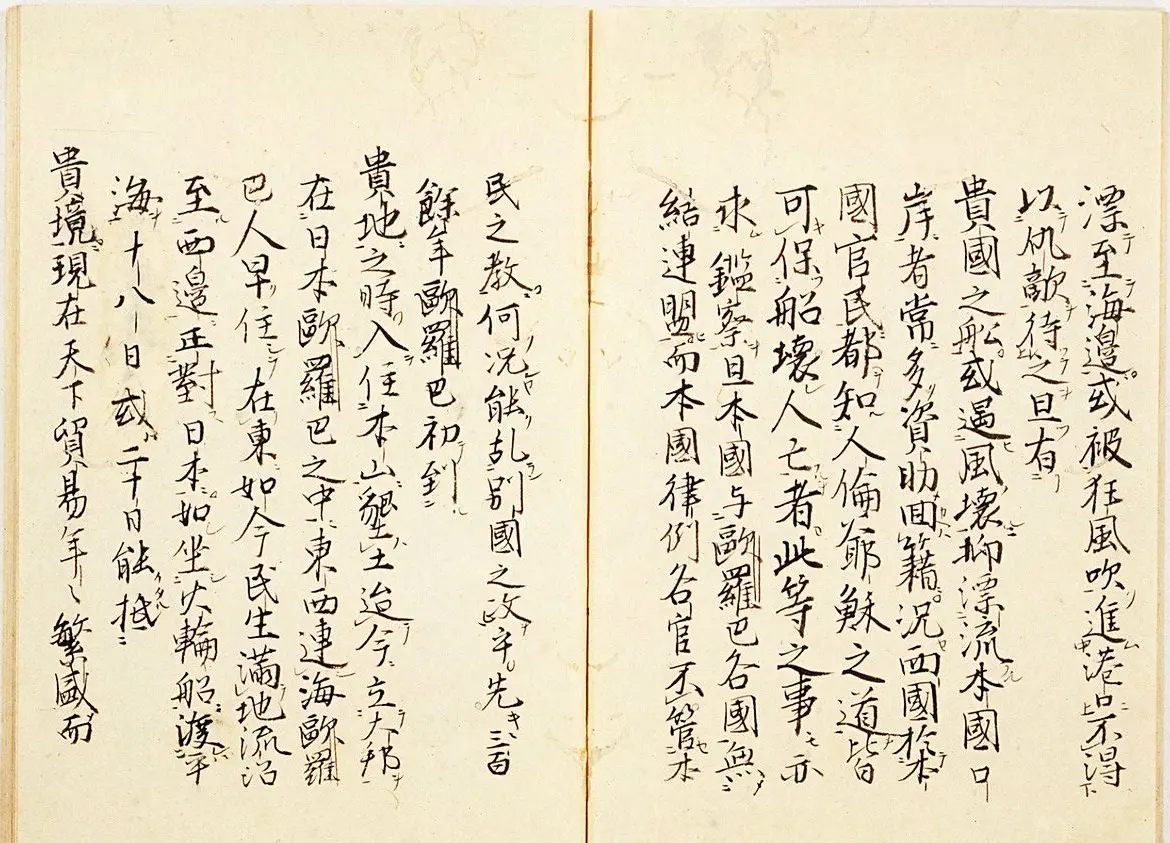 漂至海邉或被狂風吹進港口不得
以仇敵待之且有
貴國之船或遇風壊抑漂流本國口
岸者常多資助囬籍況西國於本
國官民都知人倫爺穌之道皆
可保船壊人亡者此等之事亦
求鑑察且本國与歐羅巴各國無
結連盟而本國律例各官不管本
民之教何况能乱别國之政乎先三百
餘年歐羅巴初到
貴地之時入住本山墾土迨今立大邦
在日本歐羅巴之中東西連海歐羅
巴人早住在東如今民生滿地流沿
至西邉正對日本如坐火輪船渡平
海十八日或二十日能抵
貴境現在天下貿易年〻繁盛而